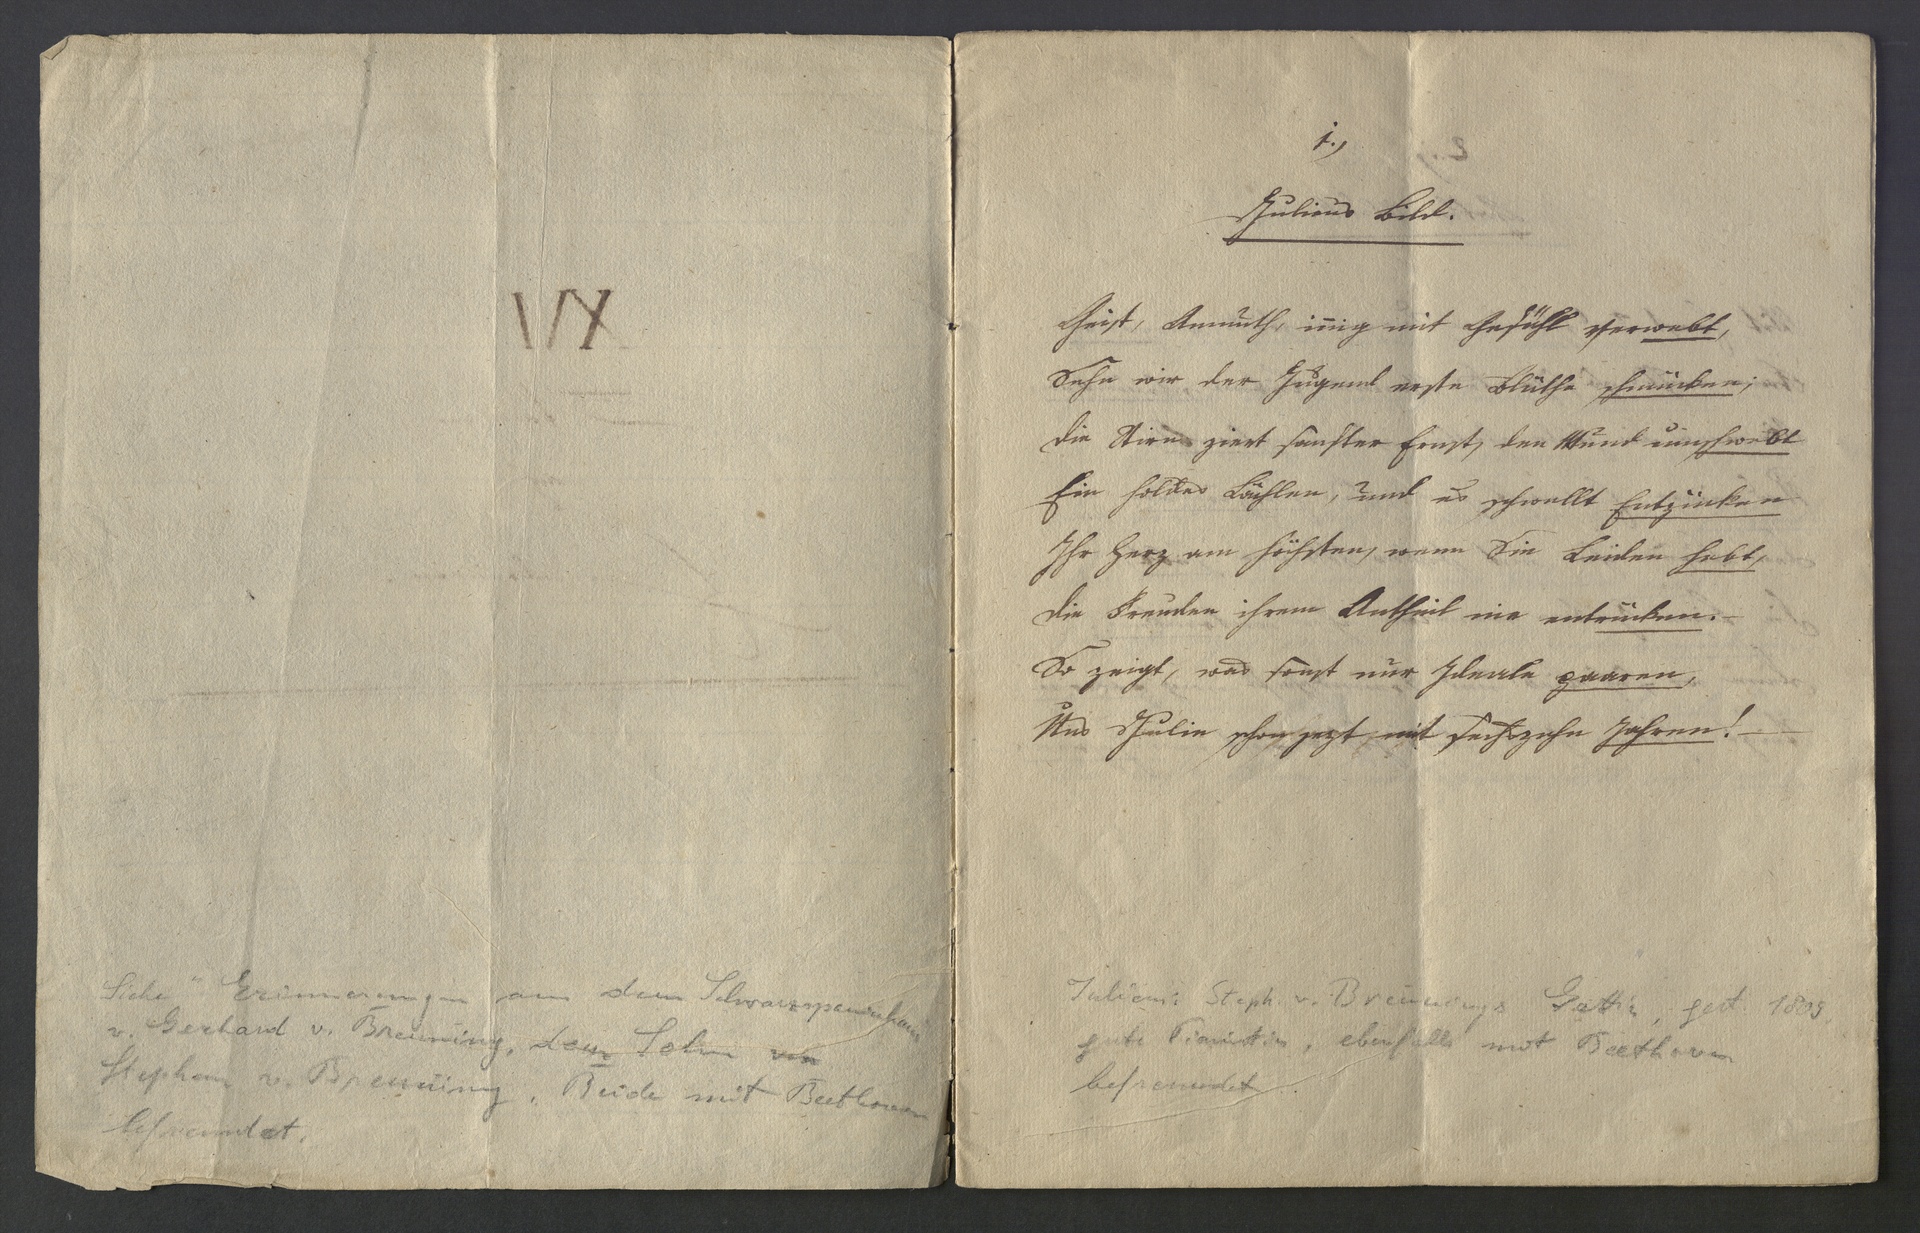 Siehe "Erinnerungen aus dem Schwarzspanierhaus
v. Gerhard v. Breuning, dem Sohn von
Stephan v. Breuning. Beide mit Beethoven
befreundet.
1.,
Juliens Bild.
Geist, Anmuth, innig mit Gefühl verwebt,
Sehn wir der Jugend erste Blüthe schmücken;
die Stirn ziert sanfter Ernst, den Mund umschwebt
Ein holdes Lächlen, und es schwellt Entzücken
Ihr Herz am höchsten, wenn Sie Leiden hebt,
die Freuden ihrem Antheil nie entrücken.–
So zeigt, was sonst nur Ideale paaren,
Uns Julie schon jezt mit sechszehn Jahren!–
Julien: Steph. v. Breunings Gattin, gest. 1809,
gute Pianistin, ebenfalls mit Beethoven
befreundet.